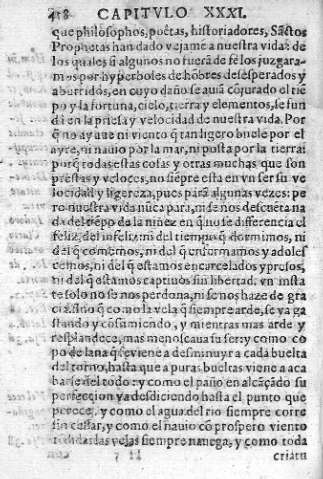 418 CAPITVLO XXXI.
que philosophos, poëtas, historiadores, Sãctos
Prophetas han dado vejame a nuestra vida: de
los quales ũ algunos no fuerã de fe los juzgara-
mos por hyperboles de hõbres desesperados y
aburridos, en cuyo daño se auiã cõjurado el tiẽ
po y la fortuna, cielo, tierra y elementos, se fun
dã en la priesa y velocidad de nuestra vida. Por
q̃ no ay aue ni viento q̃ tan ligero buele por el
ayre, ni nauio por la mar, ni posta por la tierra:
porq̃ todas estas cosas y otras muchas que son
prestas y veloces, no siẽpre está en vn ser su ve
locidad y ligereza, pues parã algunas vezes: pe
ro nuestra vida nũca para, ni de nos descuẽta na
da del tiẽpo de la niñez en q̃ no se differencia el
feliz, del infeliz: ni del tiempo q̃ dormimos, ni
del q̃ comemos, ni del q̃ enfermamos y adoles
cemos, ni del q̃ estamos encarcelados y presos,
ni del q̃ estamos captiuos sin libertad: vn insta
te solo no se nos perdona, ni se nos haze de gra
cia: sino q̃ como la vela q̃ siempre arde, se va ga
stando y cõsumiendo, y mientras mas arde y
resplandece, mas menoscaua su ser: y como co
po de lana q̃ se viene a desminuyr a cada buelta
del torno, hasta que a puras bueltas viene a aca
barse del todo: y como el paño en alcãçado su
perfeccion va desdiciendo hasta el punto que
perece, y como el agua del rio siempre corre
sin cessar, y como el nauio cõ prospero viento
tendidas las velas siempre nauega, y como toda
criatu